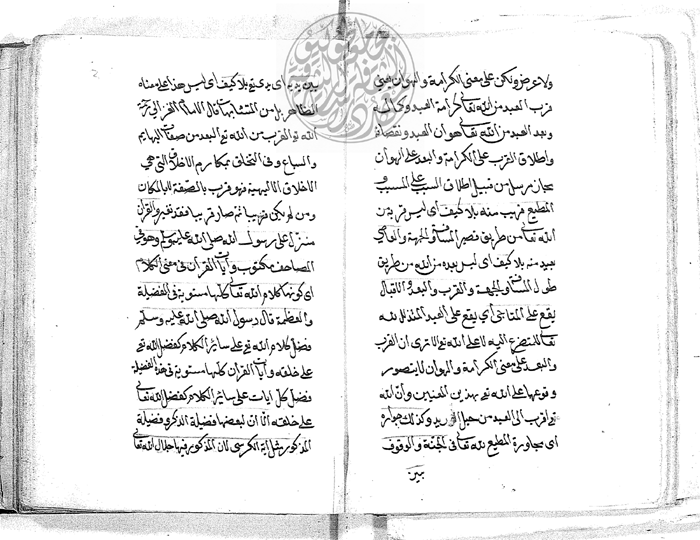 ولا عرض ولكن على معنى الكرامة والهوان يعني
قرب العبد من الله تعالى كرامة العبد وكماله
وبعد العبد من الله تعالى هوان العبد ونقصانه
واطلاق القرب على الكرامة والبعد على الهوان
مجاز مرسل من قبيل اطلاق السبب على المسبب و
المطيع قريب منه بلا كيف اى ليس قربه من
الله تعالى من طريق قصر المسافة والجهة والعاصي
بعيد منه بلا كيف اى ليس بعده من الله من طريق
طول المسافة والجهة والقرب والبعد والاقبال
يقع على المناجي أي يقع على العبد المتذلل لله
تعالى المتضرع اليه لا على الله تعالى الا ترى ان القرب
والبعد على معنى الكرامة والهوان لا يتصور
وقوعها على الله تع بهذين المعنيين وان الله
تع اقرب الى العبد من حبل الوريد وكذلك جواره
اى مجاورة المطيع لله تعالى في الجنة والوقوف
بين
بين يديه اى يدي تع بلا كيف اى ليس هذا على معناه
الظاهر بل من المتشابهات قال الامام الغزالي رحمة
الله تع القرب من الله تع البعد من صفات البهايم
والسباع وفى التخلق بمكارم الاخلاق التى هي
الاخلاق الالهية فهو قرب بالصفة لا بالمكان
ومن لم يكن قريبا ثم صار قريبا فقد تغير والقرآن
منزل على رسول الله صلى الله عليه وسلم وهو في
المصاحف مكتوب وآيات القرآن فى معنى الكلام
اى كونها كلام الله تعالى كلها مستوية فى الفضيلة
والعظمة قال رسول الله صلى الله عليه وسلم
فضل كلام الله تع على سائر الكلام كفضل الله تع
على خلقه وآيات القرآن كلها مستوية فى هذه الفضيلة
فضل كل آيات على سائر الكلام كفضل الله تعالى
على خلقه الا ان لبعضها فضيلة الذكر وفضيلة
المذكور مثل آية الكرسى لان المذكور فيها جلال الله تعالى